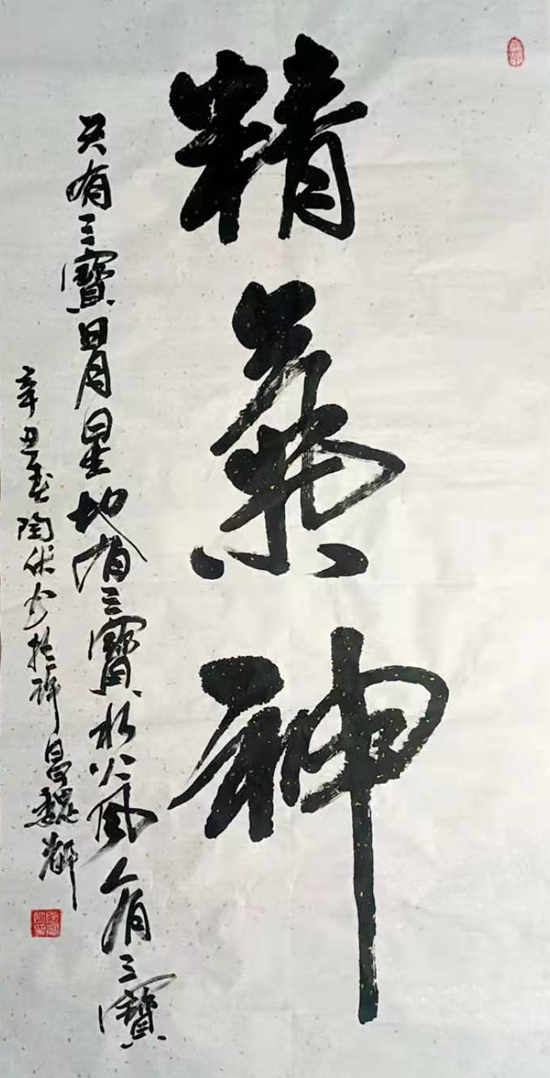 精氣神
天有三寶日月星地有三寶水火風人有三寶
辛丑春陶於許昌魏